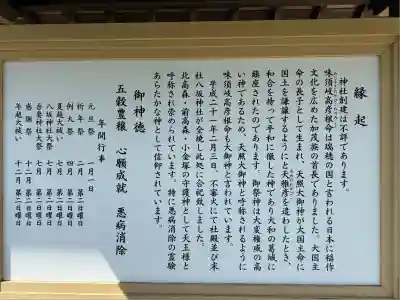 縁起
神社創建は不詳であります。
味須岐高彦根命は瑞穂の国と言われる日本に稲作
文化を広めた加茂族の首長でありました。大国主
命の長子として生まれ、天照大御神が大国主命に
国土を譲渡するようにと天雅彦を遣わしたとき、
和合を持って平和に徹した神であり大和の葛城に
鎮座されたのであります。御祭神は大変稚成の高
い神であるため、天照大御神と呼称されるように
味須岐高彦根命も大御神と言われています。
平成二十一年二月三日、不審火にて本社殿並び末
社八坂神社が全焼し此処に合祀致しました。
北高森・前高森・小金塚の守護神として天王様と
呼称され崇められています。特に悪病消除の霊験
あらたかな神として信仰されています。
御神徳
五穀豊穣 心願成就 悪病消除
年間行事
元旦祭 一月一日
祈年祭 二月 第二日曜日
例大祭 四月 第二日曜日
夏越大祓い 七月 第二日曜日
八坂神社大祭 七月 第二日曜日
吾妻神社大祭
感謝祭 十一月 第二日曜日
年越大祓い 十二月 第二日曜日